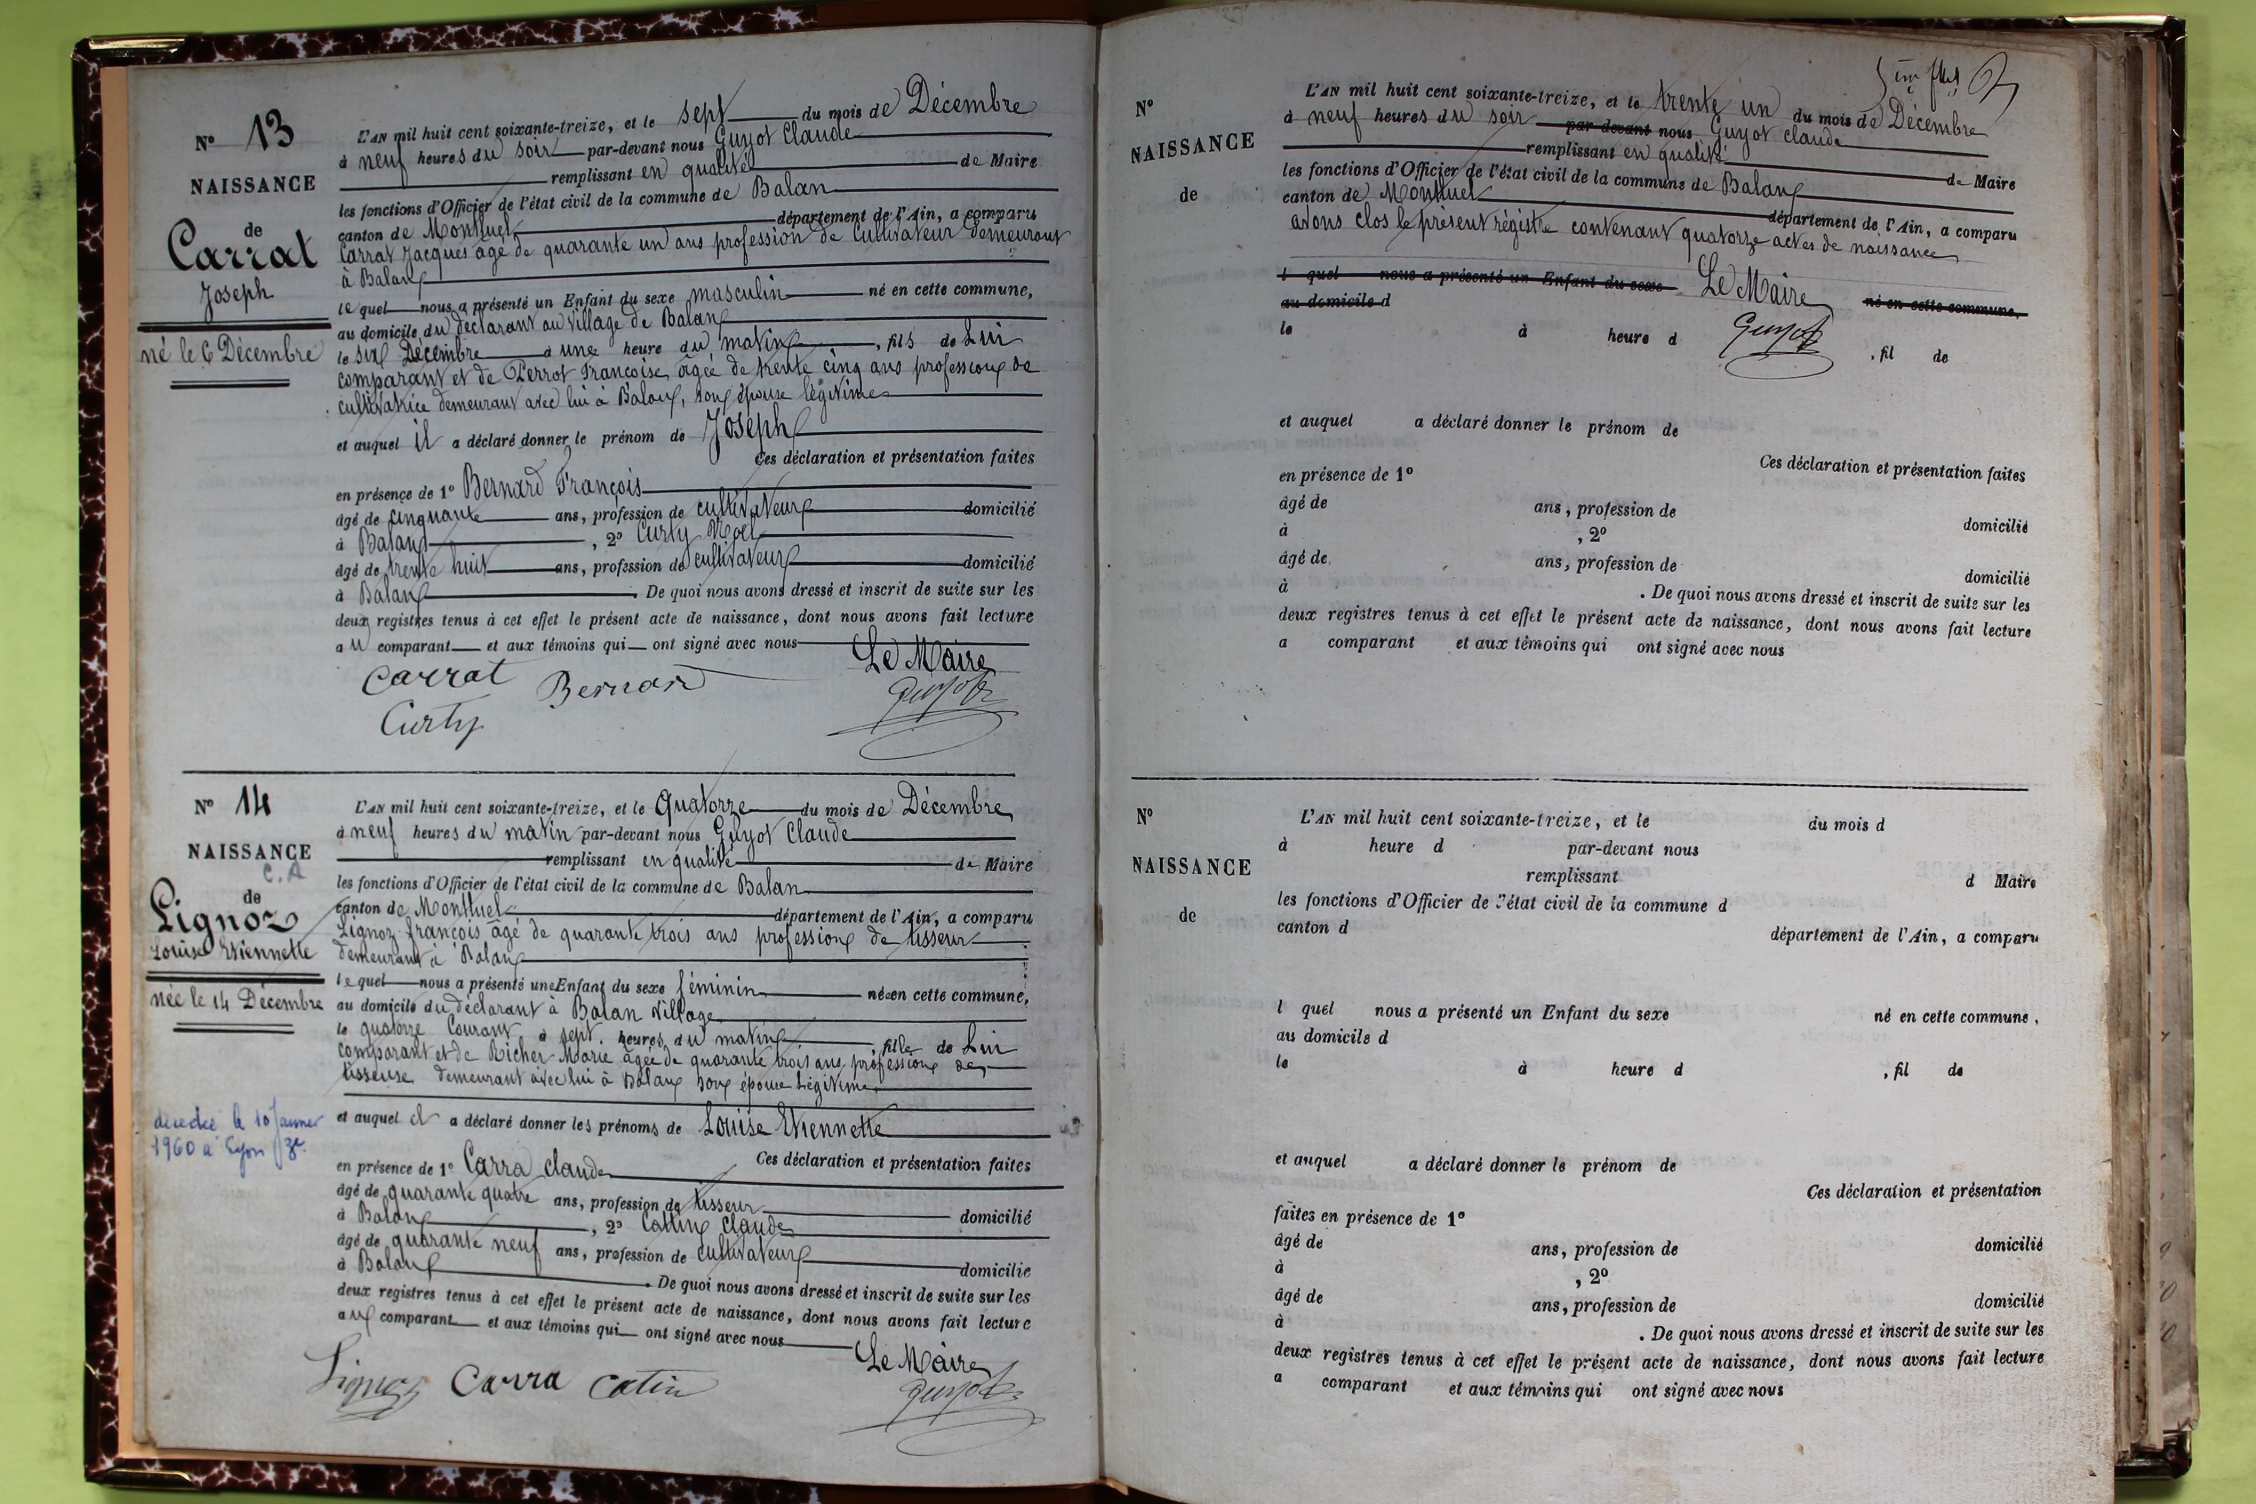 N° 13
NAISSANCE
de
Carrat
Joseph
né le 6 Décembre
L'AN mil huit cent soixante-treize, et le sept du mois de Décembre
à neuf heures du soir par-devant nous Guyot Claude
remplissant en qualité de Maire
les fonctions d'Officier de l'état civil de la commune de Balan
canton de Montluel département de l'Ain, a comparu
Carrat Jacques âgé de quarante un ans profession de Cultivateur demeurant
à Balan
lequel nous a présenté un Enfant du sexe masculin né en cette commune,
au domicile du déclarant au village de Balan
le six Décembre à une heure du matin, fils de Lui
comparant et de Perrot Francoise âgée de trente cinq ans profession de
cultivatrice demeurant avec lui à Balan, son épouse légitime
et auquel il a déclaré donner le prénom de Joseph
Ces déclaration et présentation faites
en présence de 1° Bernard François
âgé de cinquante ans, profession de cultivateur domicilié
à Balan, 2° Curty Noël
âgé de trente huit ans, profession de cultivateur domicilié
à Balan. De quoi nous avons dressé et inscrit de suite sur les
deux registres tenus à cet effet le présent acte de naissance, dont nous avons fait lecture
au comparant et aux témoins qui ont signé avec nous
Le Maire
Carrat Bernard Guyot
Curty
N° 14
NAISSANCE
C.A
de
Lignoz
Louise Etiennette
née le 14 Décembre
décédée le 10 Janvier
1960 à Lyon 3e
L'AN mil huit cent soixante-treize, et le Quatorze du mois de Décembre
à neuf heures du matin par-devant nous Guyot Claude
remplissant en qualité de Maire
les fonctions d'Officier de l'état civil de la commune de Balan
canton de Montluel département de l'Ain, a comparu
Lignoz françois âgé de quarante trois ans profession de tisseur
demeurant à Balan
lequel nous a présenté une Enfant du sexe féminin née en cette commune,
au domicile du déclarant à Balan village
le quatorze Courant à sept heures du matin, fille de Lui
comparant et de Richer Marie âgée de quarante trois ans profession de
tisseuse demeurant avec lui à Balan son épouse Légitime
et auquel il a déclaré donner les prénoms de Louise Etiennette
Ces déclaration et présentation faites
en présence de 1° Carra claude
âgé de quarante quatre ans, profession de tisseur domicilié
à Balan, 2° Cattin Claude
âgé de quarante neuf ans, profession de cultivateur domicilié
à Balan. De quoi nous avons dressé et inscrit de suite sur les
deux registres tenus à cet effet le présent acte de naissance, dont nous avons fait lecture
aux comparant et aux témoins qui ont signé avec nous
Le Maire
Lignoz Carra Catin Guyot
N°
NAISSANCE
de
L'AN mil huit cent soixante-treize, et le trente un du mois de Décembre
à neuf heures du soir par-devant nous Guyot Claude
remplissant en qualité de Maire
les fonctions d'Officier de l'état civil de la commune de Balan
canton de Montluel département de l'Ain, a comparu
avons clos le présent régistre contenant quatorze actes de naissance
l quel nous a présenté un Enfant du sexe né en cette commune,
Le Maire
au domicile d
le à heure d , fil de
Guyot
et auquel a déclaré donner le prénom de
Ces déclaration et présentation faites
en présence de 1°
âgé de ans, profession de domicilié
à , 2°
âgé de ans, profession de domicilié
à . De quoi nous avons dressé et inscrit de suite sur les
deux registres tenus à cet effet le présent acte de naissance, dont nous avons fait lecture
a comparant et aux témoins qui ont signé avec nous
N°
NAISSANCE
de
L'AN mil huit cent soixante-treize, et le du mois d
à heure d par-devant nous
remplissant d Maire
les fonctions d'Officier de l'état civil de la commune d
canton d département de l'Ain, a comparu
l quel nous a présenté un Enfant du sexe né en cette commune,
au domicile d
le à heure d , fil de
et auquel a déclaré donner le prénom de
Ces déclaration et présentation
faites en présence de 1°
âgé de ans, profession de domicilié
à , 2°
âgé de ans, profession de domicilié
à . De quoi nous avons dressé et inscrit de suite sur les
deux registres tenus à cet effet le présent acte de naissance, dont nous avons fait lecture
a comparant et aux témoins qui ont signé avec nous